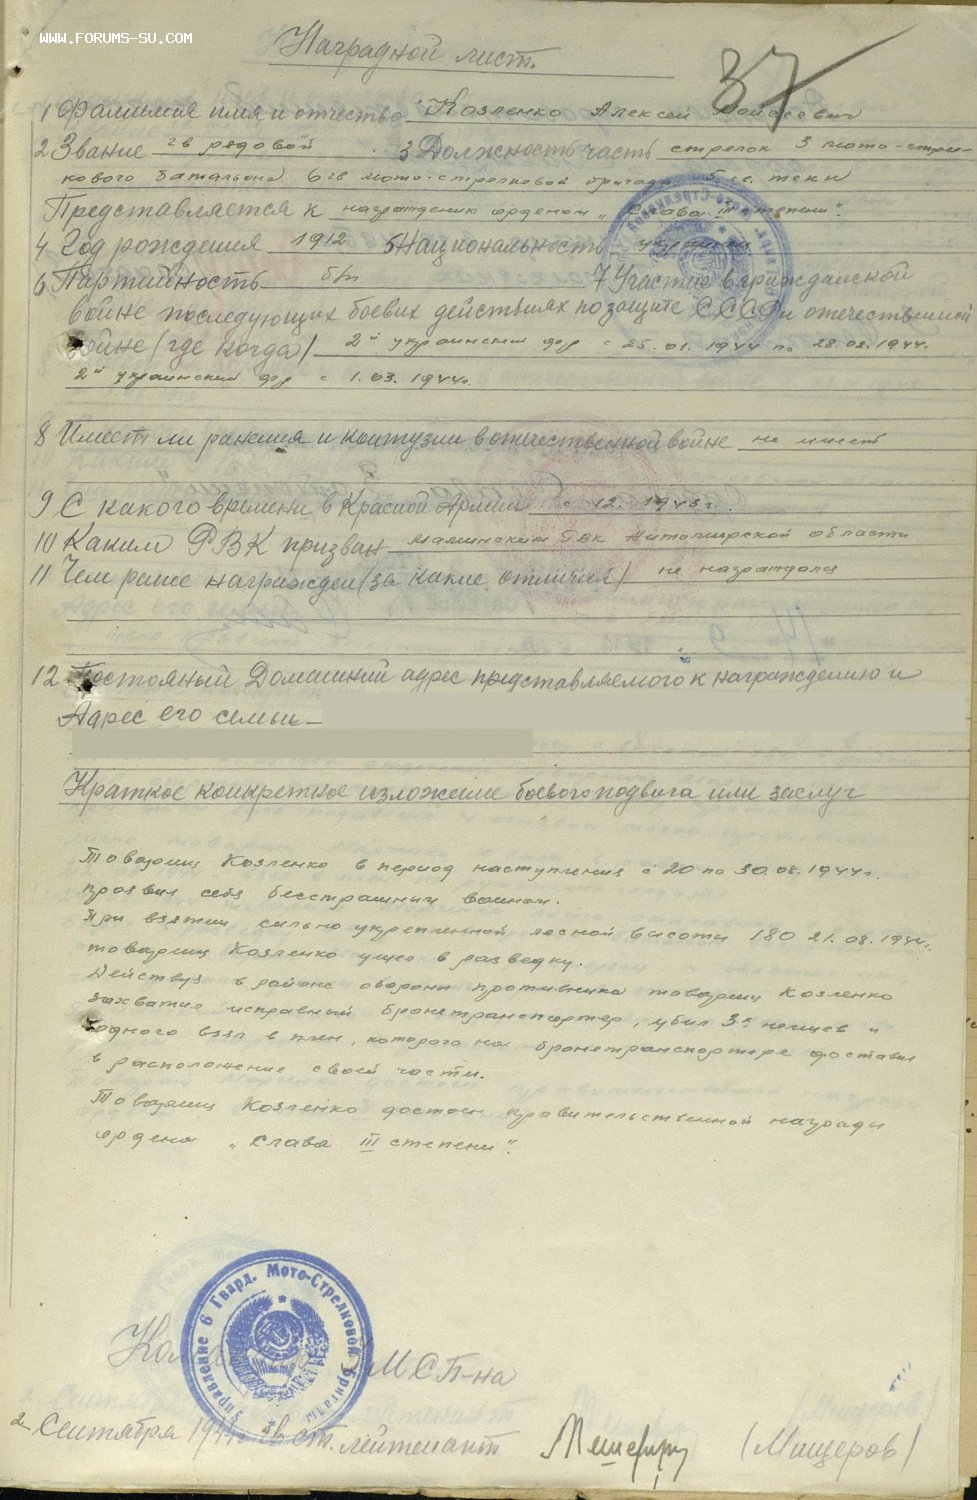 WWW.FORUMS-SU.COM
Наградной лист.
37
1 Фамилия имя и отчество Козленко Алексей Мойсеевич
2 Звание гв рядовой 3 Должность часть стрелок 3 мото-стрел-
кового батальона 6 гв мото-стрелковой бригады 5 гв. ткки
Представляется к награждению орденом „Слава III степени".
4 Год рождения 1912 5 Национальность украинец
6 Партийность б/п 7 Участие в гражданской
войне последующих боевых действиях по защите СССР и отечественной
войне (где когда) 2й украинский фр с 25.01.1944 по 28.02.1944.
2й украинский фр с 1.03.1944г.
8 Имеет ли ранения и контузии в отечественной войне не имеет
9 С какого времени в Красной Армии с 12.1943г.
10 Каким РВК призван Малинским Рвк Житомирской области
11 Чем ранее награжден (за какие отличия) не награждался
12 Постояный Домашний адрес представляемого к награждению и
Адрес его семьи —
Краткое конкретное изложение боевого подвига или заслуг
Товарищ Козленко в период наступления с 20 по 30.08.1944г.
проявил себя бесстрашным воином.
При взятии сильно укрепленной лесной высоты 180 21.08.1944г.
товарищ Козленко ушел в разведку.
Действуя в районе обороны противника товарищ Козленко
захватив исправный бронетранспортер, убил 3х немцев и
одного взял в плен, которого на бронетранспортере доставил
в расположение своей части.
Товарищ Козленко достоин правительственной награды
ордена „Слава III степени".
Управление 6 Гвард. Мото-Стрелковой Бригады
МСП-на
2 Сентября 1944г. гв ст. лейтенант (Мищеров)